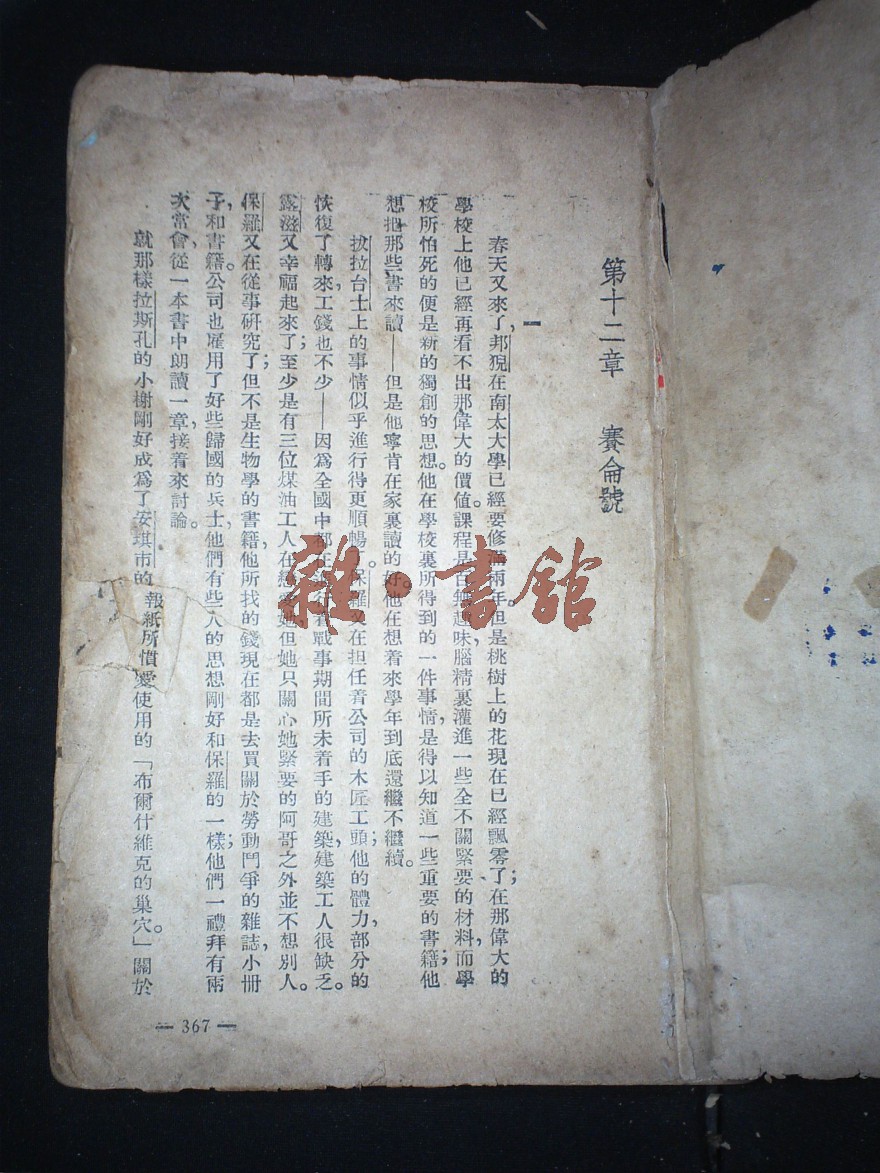 第十二章　賽倫號
一
春天又來了，邦猊在南太大學已經要修滿兩年。但是桃樹上的花現在已經飄零了；在那偉大的
學校上他已經再看不出那偉大的價值。課程是百無趣味，腦精裏灌進一些全不關緊要的材料，而學
校所怕死的便是新的獨創的思想。他在學校裏所得到的一件事情，是得以知道一些重要的書籍；他
想把那些書來讀——但是他寧肯在家裏讀的好。他在想着來學年到底還繼不繼續。
拔拉台士上的事情似乎進行得更順暢。保羅又在担任着公司的木匠工頭；他的體力部分的
恢復了轉來，工錢也不少——因爲全國中都在着戰事期間所未着手的建築，建築工人很缺乏。
露滋又幸福起來了；至少是有三位煤油工人在戀愛她，但她只關心她緊要的阿哥之外並不想別人。
保羅又在從事研究了；但不是生物學的書籍，他所找的錢現在都是去買關於勞動鬥爭的雜誌，小册
子，和書籍。公司也雇用了好些歸國的兵士，他們有些人的思想剛好和保羅的一樣；他們一禮拜有兩
次常會，從一本書中朗讀一章，接着來討論。
就那樣拉斯孔的小榭剛好成爲了安琪市的報紙所慣愛使用的「布爾什維克的巢穴。」關於
— 367 —
雜·書館